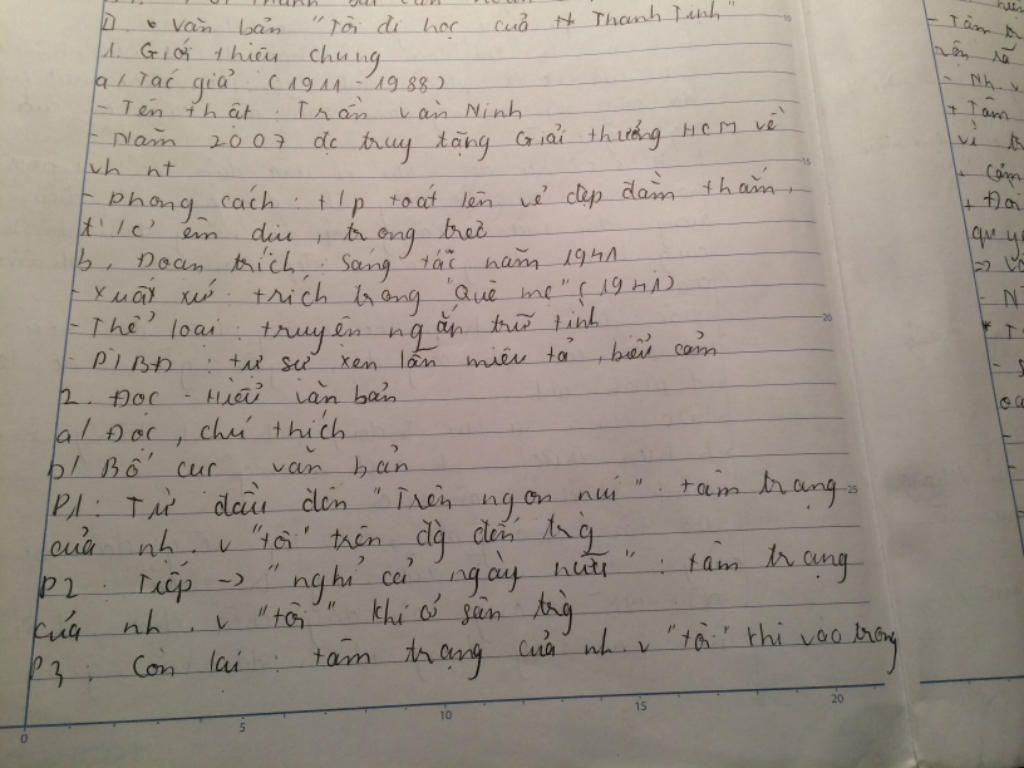 D. • Văn bản "Tôi đi học của Thanh Tịnh"
1. Giới thiệu chung
a/ Tác giả (1911 - 1988)
- Tên thật: Trần Văn Ninh
- Năm 2007 đc truy tặng Giải thưởng HCM về
vh nt
- phong cách: t/p toát lên vẻ đẹp đằm thắm,
t'/c' êm dịu, trong trẻo
b, Đoạn trích: sáng tác năm 1941
- xuất xứ: trích trong "Quê mẹ" (1941)
- Thể loại: truyện ngắn trữ tình
- P/BĐ: tự sự xen lẫn miêu tả, biểu cảm
2. Đọc - Hiểu văn bản
a/ Đọc, chú thích
b/ Bố cục văn bản
P1: Từ đầu đến "Trên ngọn núi": tâm trạng
của nh.v "tôi" trên đg đến trg
P2: Tiếp -> "nghỉ cả ngày nữa": tâm trạng
của nh.v "tôi" khi ở sân trg
P3: Còn lại: tâm trạng của nh.v "tôi" khi vào trong
0 5 10 15 20
- Tâm
- Nh.v
+ Tâm
- Cảm